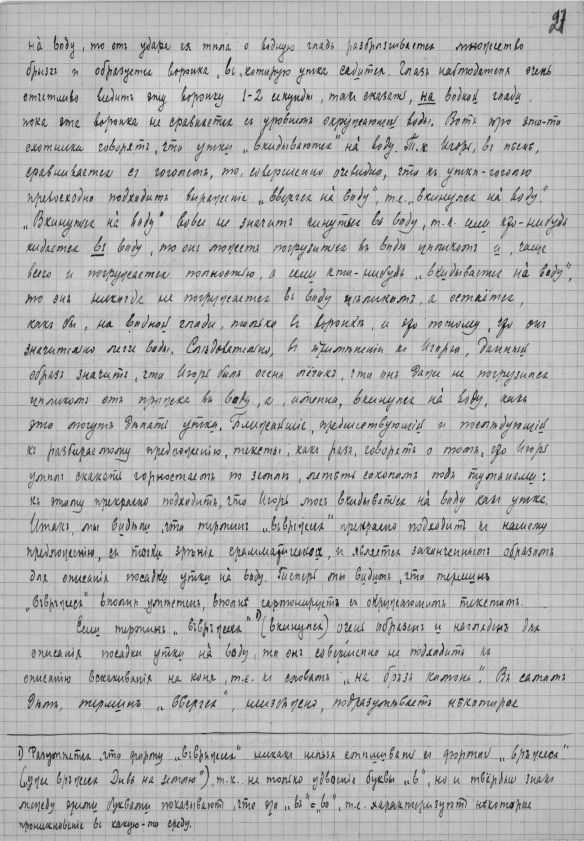 27
на̀ воду, то отъ удара ея тѣла о водную гладь разбрызгивается множество
брызгъ и образуется воронка, въ которую утка садится. Глазъ наблюдателя очень
отчетливо видитъ эту воронку 1-2 секунды, такъ сказать, на водной глади,
пока эта воронка не сравняется съ уровнемъ окружающей воды. Вотъ про это-то
охотники говорятъ, что утки „вкидываются на̀ воду. Т.к. Игорь, въ пѣснѣ,
сравнивается съ гоголемъ, то, совершенно очевидно, что къ утки-гоголю
превосходно подходитъ выраженіе „ввергся на̀ воду", т.е. „вкинулся на̀ воду."
„Вкинуться на̀ воду" вовсе не значитъ кинуться въ воду, т.к. если кто-нибудь
кидается въ воду, то онъ можетъ погрузиться въ воду цѣликомъ и, чаще
всего и погружается полностью, а если кто-нибудь „вкидывается на̀ воду",
то онъ никогда не погружается въ воду цѣликомъ, а остаётся,
какъ бы, на водной глади, только въ воронкѣ, и это потому, что онъ
значительно легче воды. Слѣдовательно, въ примѣненіи къ Игорю, данный
образъ значитъ, что Игорь былъ очень лёгокъ, что онъ даже не погрузился
цѣликомъ отъ прыжка въ воду, а, именно, вкинулся на̀ воду, какъ
это могутъ дѣлать утки. Ближайшіе, предшествующій и послѣдующій
къ разбираемому предложенію, тексты, какъ разъ, говорятъ о томъ, что Игорь
умѣлъ скакать горностаемъ по землѣ, летѣть соколомъ подъ туманами:
къ этому прекрасно подходитъ, что Игорь могъ вкидываться на̀ воду какъ утка.
Итакъ, мы видѣли, что терминъ „въвръжеся" прекрасно подходитъ къ нашему
предложенію, съ точки зрѣнія грамматической, и является законченнымъ образомъ
для описанія посадки утки на̀ воду. Теперь мы видимъ, что терминъ
„въвръжеся" вполнѣ умѣстенъ, вполнѣ гармонируетъ съ окружающимъ текстомъ.
Если терминъ „въвръжеся"¹⁾ (вкинулся) очень образенъ и нагляденъ для
описанія посадки утки на̀ воду, то онъ совершенно не подходитъ къ
описанію вскакиванія на коня, т.е. къ словамъ „на бръзъ комонь". Въ самомъ
дѣлѣ, терминъ „ввергся", неизбѣжно, подразумѣваетъ нѣкоторое
1) Разумѣется, что форму „въвръжеся" никакъ нельзя смѣшивать съ формой „връжеса"
(„уже връжеса Дивь на землю"), т.к. не только удвоеніе буквы „в", но и твёрдый знакъ
между этими буквами показываютъ, что это „въ"="во", т.е. характеризуютъ нѣкоторое
проникновеніе въ какую-то среду.